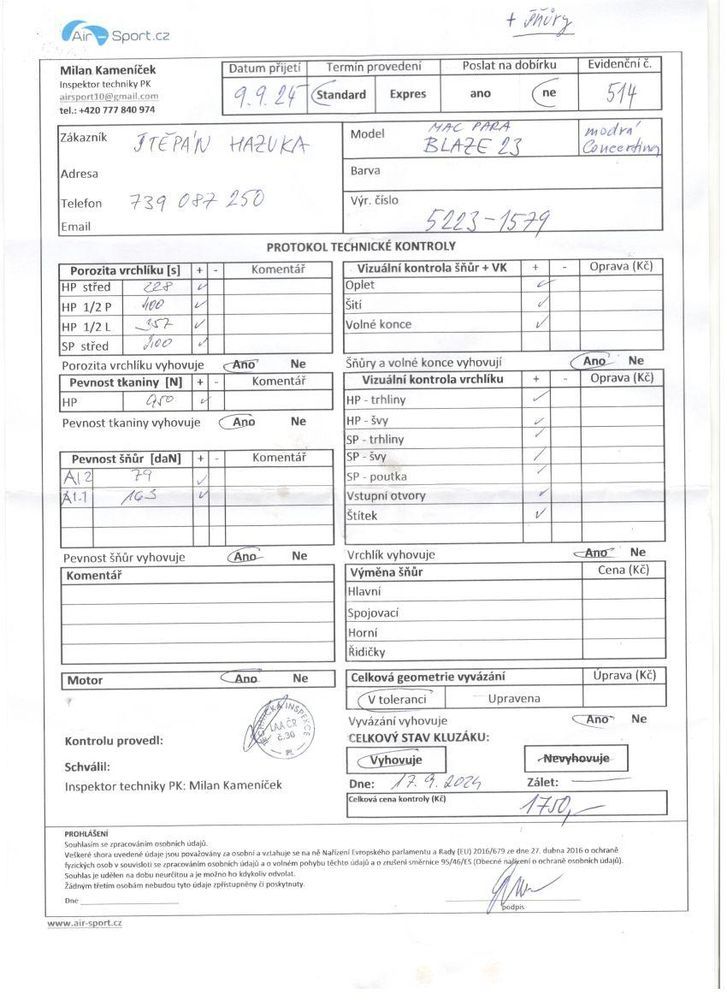 + šňůry
Air-Sport.cz
Milan Kameníček
Inspektor techniky PK
airsport10@gmail.com
tel.: +420 777 840 974
Datum přijetí Termín provedení Poslat na dobírku Evidenční č.
9.9.24 Standard Expres ano ne 514
Zákazník ŠTĚPÁN HAZUKA
Model MAC PARA BLAZE 23
modrá
Concertina
Adresa
Barva
Telefon 739 087 250
Výr. číslo 5223-1579
Email
PROTOKOL TECHNICKÉ KONTROLY
Porozita vrchlíku [s] + - Komentář
HP střed 228
HP 1/2 P 400
HP 1/2 L 357
SP střed
Porozita vrchlíku vyhovuje Ano Ne
Pevnost tkaniny [N] + - Komentář
HP 950
Pevnost tkaniny vyhovuje Ano Ne
Pevnost šňůr [daN] + - Komentář
A12 79
A1.1 163
Pevnost šňůr vyhovuje Ano Ne
Komentář
Motor Ano Ne
Vizuální kontrola šňůr + VK + - Oprava (Kč)
Oplet
Šití
Volné konce
Šňůry a volné konce vyhovují Ano Ne
Vizuální kontrola vrchlíku + - Oprava (Kč)
HP - trhliny
HP - švy
SP - trhliny
SP - švy
SP - poutka
Vstupní otvory
Štítek
Vrchlík vyhovuje Ano Ne
Výměna šňůr Cena (Kč)
Hlavní
Spojovací
Horní
Řidičky
Celková geometrie vyvázání Úprava (Kč)
V toleranci Upravena
Vyvázání vyhovuje Ano Ne
CELKOVÝ STAV KLUZÁKU:
Vyhovuje Nevyhovuje
Dne: 17.9.2024 Zálet:
Celková cena kontroly (Kč) 1750,-
Kontrolu provedl:
TECHNICKÁ INSPEKCE
LAA ČR
č.30
PL
Schválil:
Inspektor techniky PK: Milan Kameníček
PROHLÁŠENÍ
Souhlasím se zpracováním osobních údajů.
Veškeré shora uvedené údaje jsou považovány za osobní a vztahuje se na ně Nařízení Evropského parlamentu a Rady (EU) 2016/679 ze dne 27. dubna 2016 o ochraně
fyzických osob v souvislosti se zpracováním osobních údajů a o volném pohybu těchto údajů a o zrušení směrnice 95/46/ES (Obecné nařízení o ochraně osobních údajů).
Souhlas je udělen na dobu neurčitou a je možno ho kdykoliv odvolat.
Žádným třetím osobám nebudou tyto údaje zpřístupněny či poskytnuty.
Dne
podpis
www.air-sport.cz